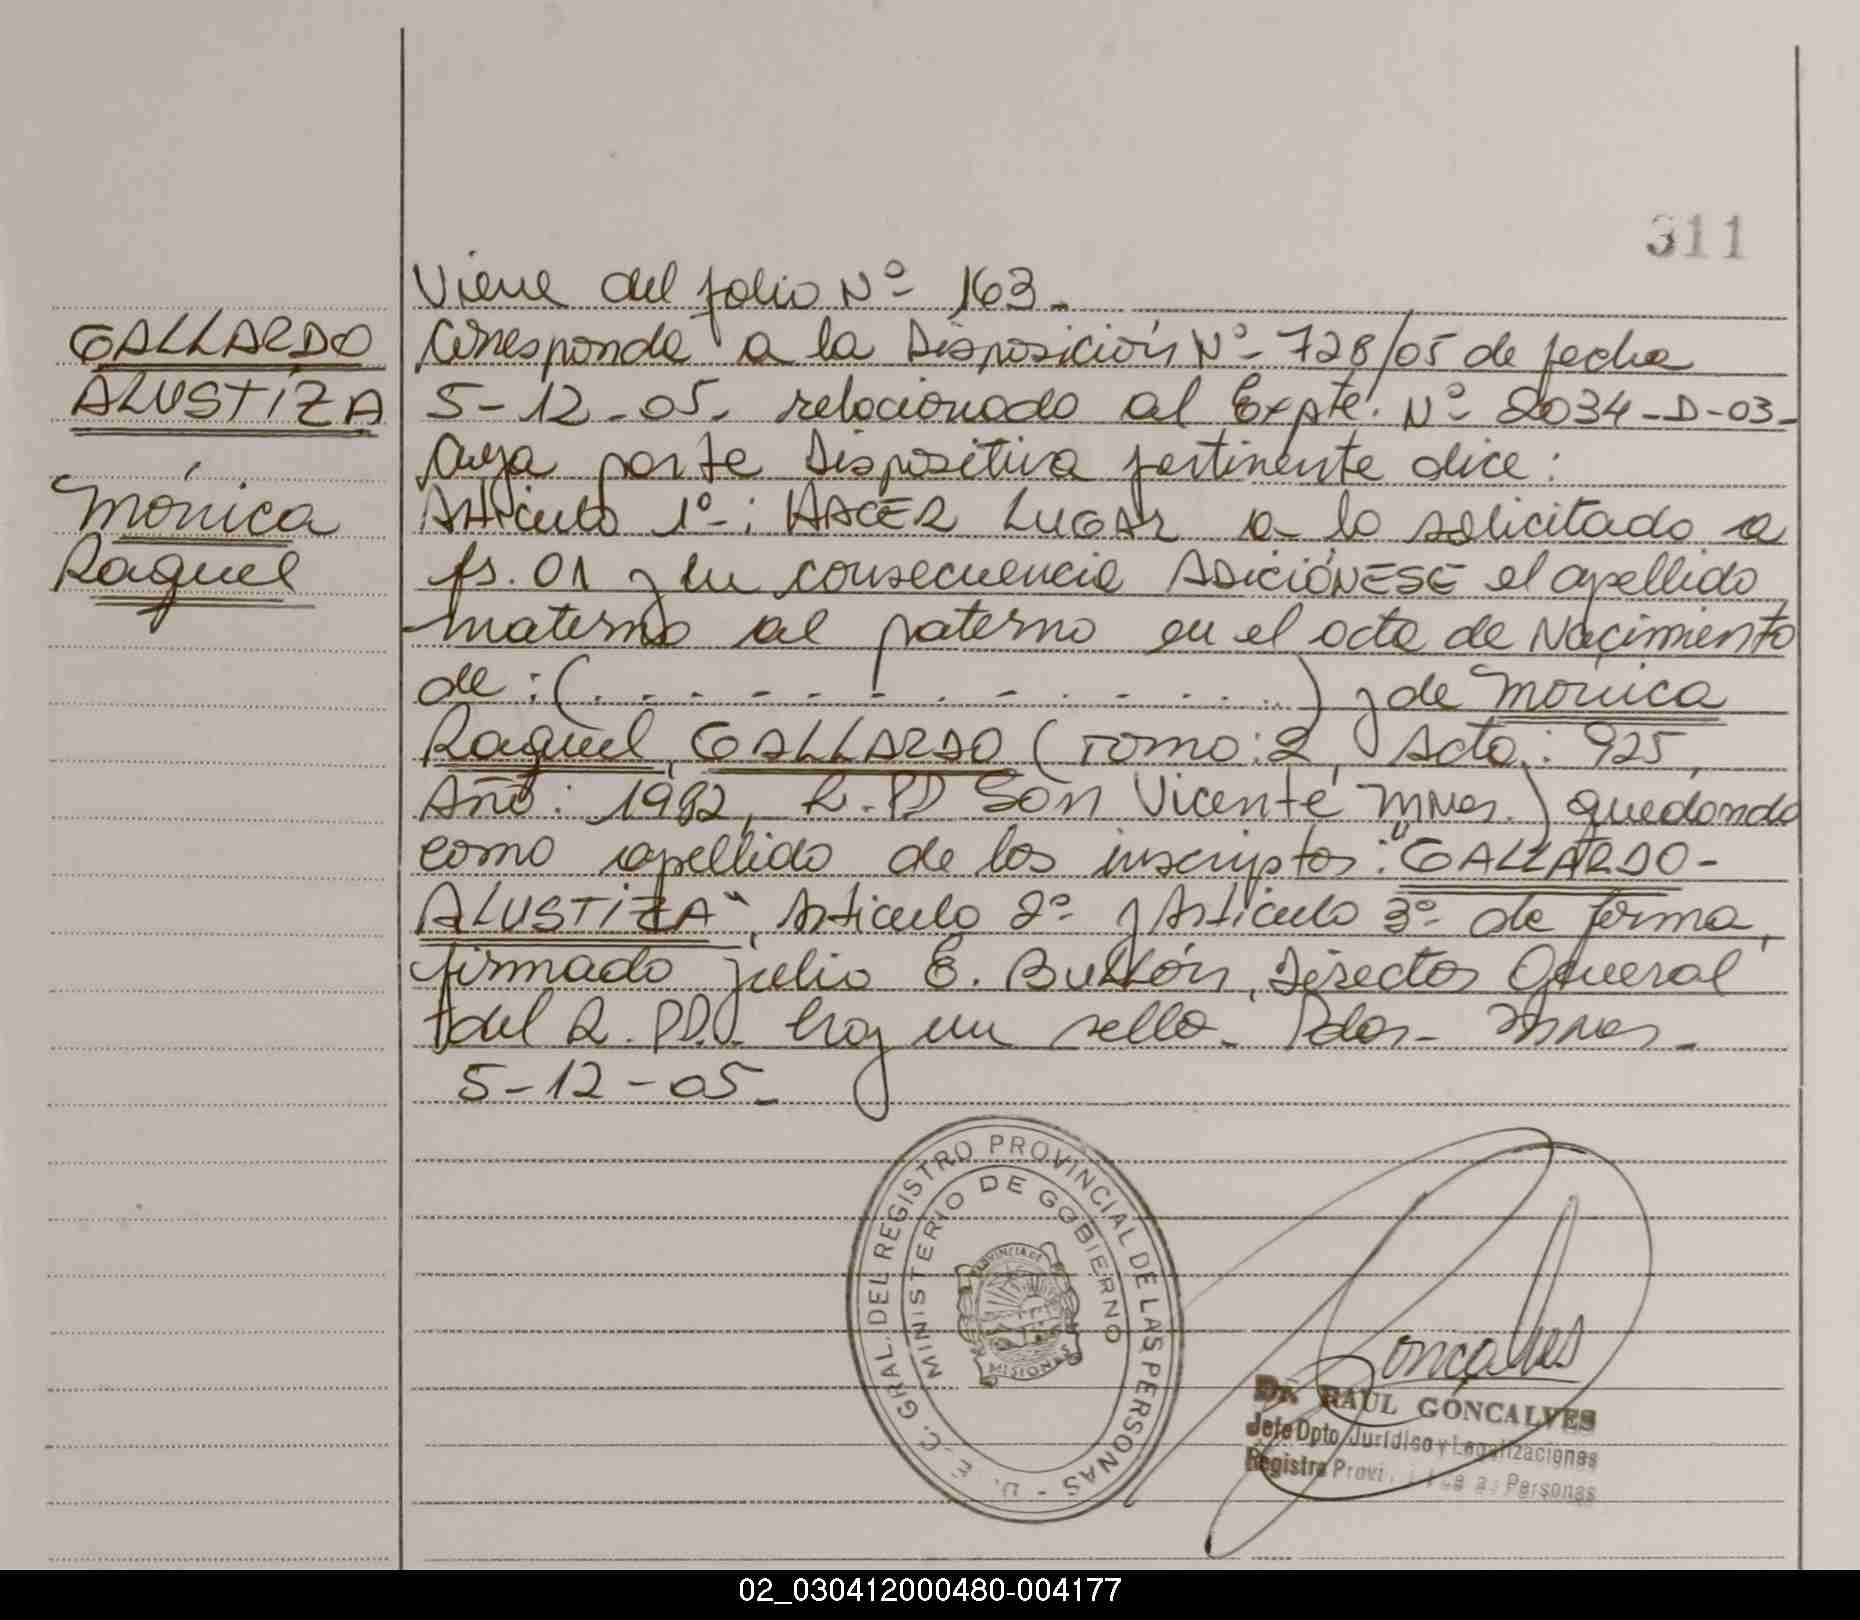 311
Viene del folio Nº 163.
GALLARDO
ALUSTIZA
Mónica
Raquel
Corresponde a la Disposición Nº 728/05 de fecha
5-12-05. relacionado al Expte. Nº 2034-D-03-
cuya parte Dispositiva pertinente dice:
Artículo 1º-: HACER LUGAR a lo solicitado a
fs. 01 y en consecuencia ADICIÓNESE el apellido
materno al paterno en el acta de Nacimiento
de: (. - . - . - . - . - . - .) y de Mónica
Raquel GALLARDO (Tomo: 2, Acta: 925,
Año: 1982, R.PD San Vicente Mnes.) quedando
como apellido de los inscriptos: "GALLARDO-
ALUSTIZA", Artículo 2º y Artículo 3º de forma,
firmado Julio E. Bullón, Director General
del R.PD. hay un sello. Pdas- Mnes.
5-12-05.
D. E. C. GRAL. DEL REGISTRO PROVINCIAL DE LAS PERSONAS -
MINISTERIO DE GOBIERNO
PROVINCIA DE
MISIONES
Goncalves
Dr. RAUL GONCALVES
Jefe Dpto Jurídico y Legalizaciones
Registro Provi Personas
02_030412000480-004177